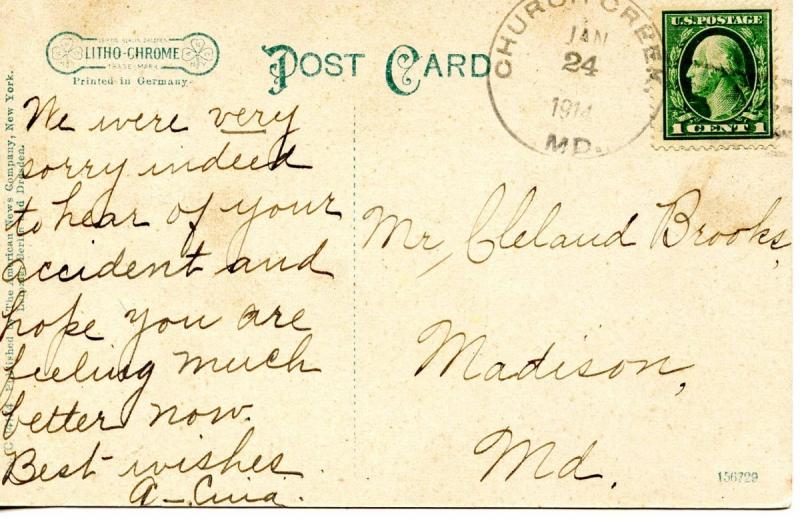 LITHO-CHROME
TRADE MARK
Printed in Germany.
POST CARD
CHURCH CREEK
JAN
24
1914
MD.
U.S. POSTAGE
1 CENT 1
We were very
sorry indeed
to hear of your
accident and
hope you are
feeling much
better now.
Best wishes
Mr, Cleland Brooks,
Madison,
Md.
Published by The American News Company, New York.
Leipzig, Berlin and Dresden.
156729